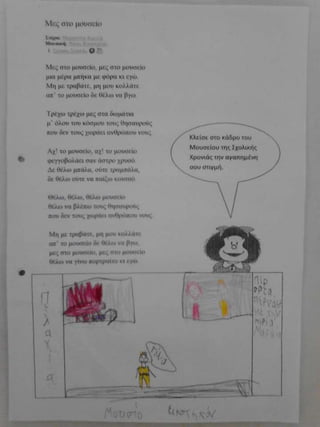 Μες στο μουσείο
Στίχοι:
Μουσική:
Μες στο μουσείο, μες στο μουσείο
μια μέρα μπήκα με φόρα κι εγώ.
Μη με τραβάτε, μη μου κολλάτε
απ’ το μουσείο δε θέλω να βγω.
Τρέχω τρέχω μες στα δωμάτια
μ’ όλου του κόσμου τους θησαυρούς
που δεν τους χωράει ανθρώπου νους.
Αχ! το μουσείο, αχ! το μουσείο
φεγγοβολάει σαν άστρο χρυσό.
Δε θέλω μπάλα, ούτε τραμπάλα,
δε θέλω ούτε να παίξω κουτσό.
Θέλω, θέλω, θέλω μουσείο
θέλω να βλέπω τους θησαυρούς
που δεν τους χωράει ανθρώπου νους.
Μη με τραβάτε, μη μου κολλάτε
απ’ το μουσείο δε θέλω να βγω,
μες στο μουσείο, μες στο μουσείο
θέλω να γίνω πορτραίτο κι εγώ.
Κλείσε στο κάδρο του
Μουσείου της Σχολικής
Χρονιάς την αγαπημένη
σου στιγμή.
Μουσίο